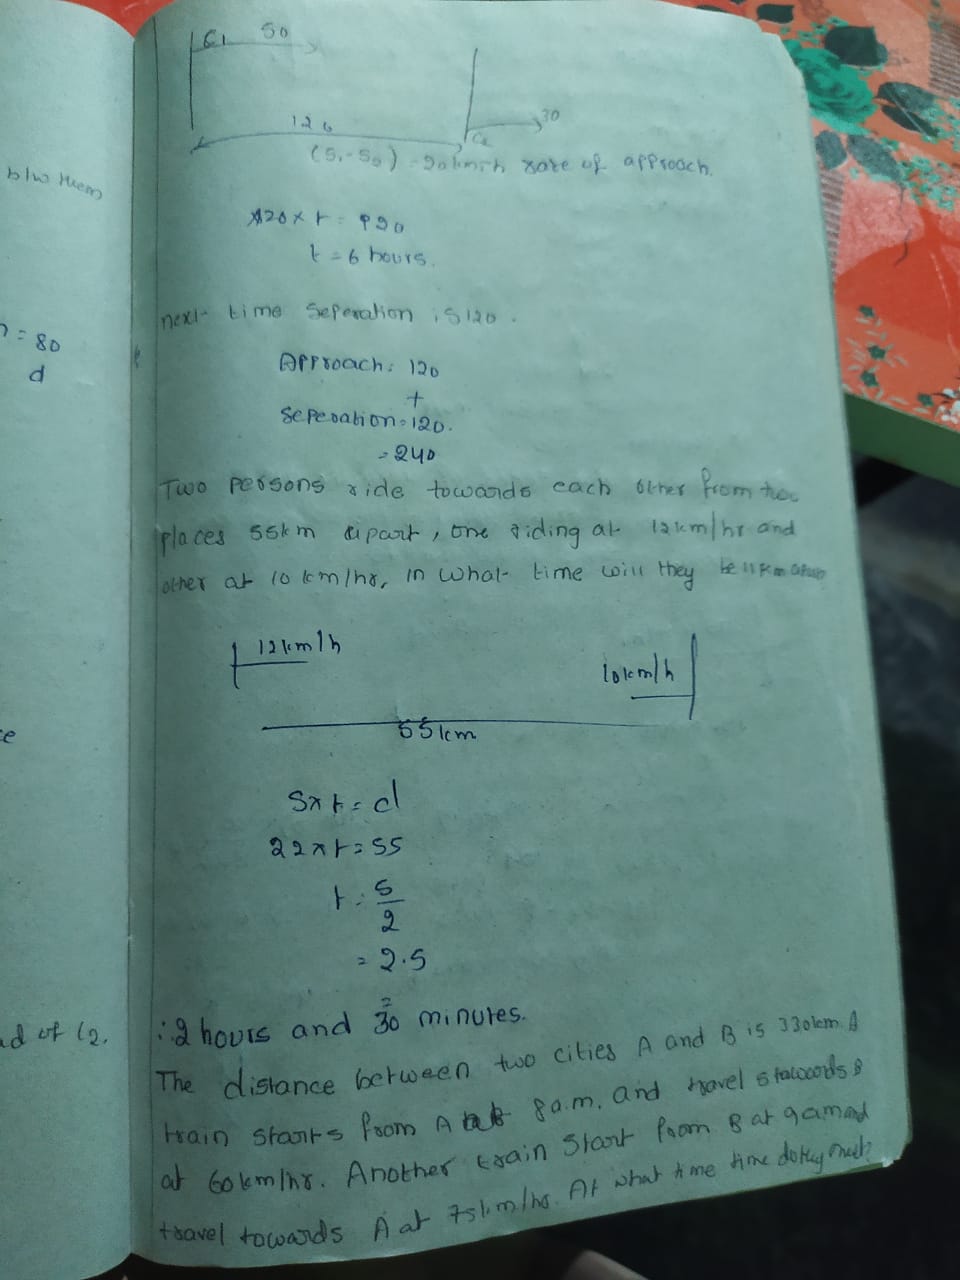 blw them
n = 80
d
ce
nd of C2.
C1 50
120
30
C2
(S1-S2) = 20 km/h rate of approach.
t = 6 hours.
next time Seperation is 120.
Approach: 120
+
Seperation = 120.
= 240
Two persons ride towards each other from two
places 55km apart, one riding at 12km/hr and
other at 10 km/hr, in what time will they be 11 km apart
12km/h
10km/h
55km
S x t = d
22 x t = 55
t = 5/2
= 2.5
: 2 hours and 30 minutes.
The distance between two cities A and B is 330km. A
train starts from A at 8 a.m. and travel stowards B
at 60km/hr. Another train Start from B at 9am and
travel towards A at 75km/hr. At what time time do they meet?